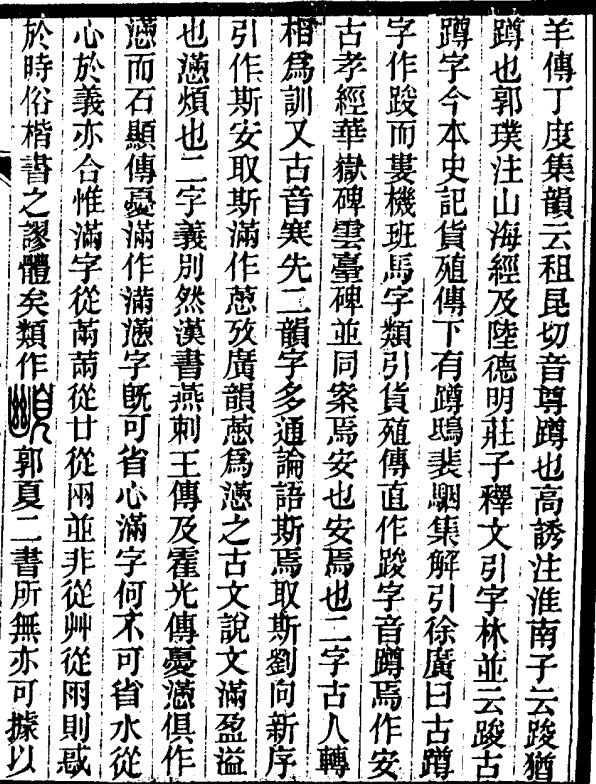 羊傳丁度集韻云租昆切音尊蹲也高誘注淮南子云踆猶
蹲也郭璞注山海經及陸德明莊子釋文引字林並云踆古
蹲字今本史記貨殖傳下有蹲鴟裴駰集解引徐廣曰古蹲
字作踆而婁機班馬字類引貨殖傳直作踆字音蹲焉作安
古孝經華嶽碑雲臺碑並同案焉安也安焉也二字古人轉
相爲訓又古音寒先二韻字多通論語斯焉取斯劉向新序
引作斯安取斯滿作㒼攷廣韻㒼爲懣之古文說文滿盈溢
也懣煩也二字義別然漢書燕剌王傳及霍光傳憂懣俱作
懣而石顯傳憂滿作滿懣字旣可省心滿字何不可省水從
心於義亦合惟滿字從㒼㒼從廿從㒳並非從艸從雨則惑
於時俗楷書之謬體矣類作郭夏二書所無亦可據以